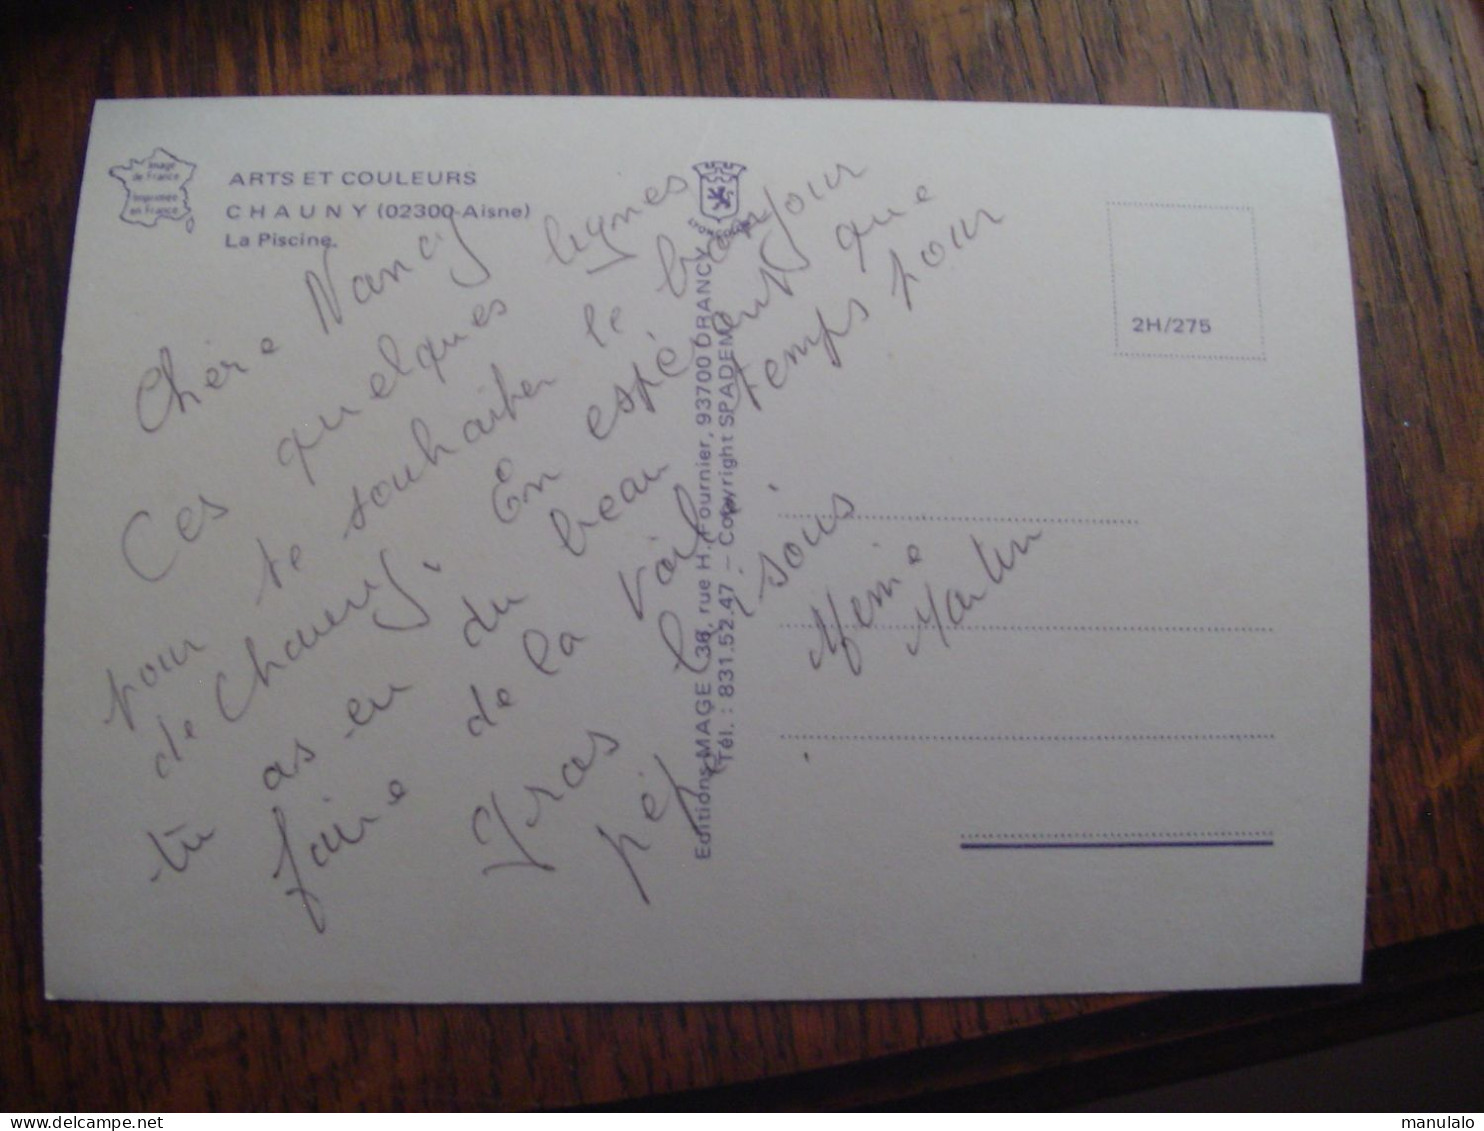 Image
de France
Imprimée
en France
ARTS ET COULEURS
CHAUNY (02300-Aisne)
La Piscine.
LYONCOLOR
2H/275
Editions MAGE 36, rue H. Fournier, 93700 DRANCY
Tél. : 831.52.47 — Copyright SPADEM
Chère Nancy
Ces quelques lignes
pour te souhaiter le bonjour
de Chauny. En espérant que
tu as eu du beau temps pour
faire de la voile.
Gros bisous
pépé Mémie
Martin
manulalo